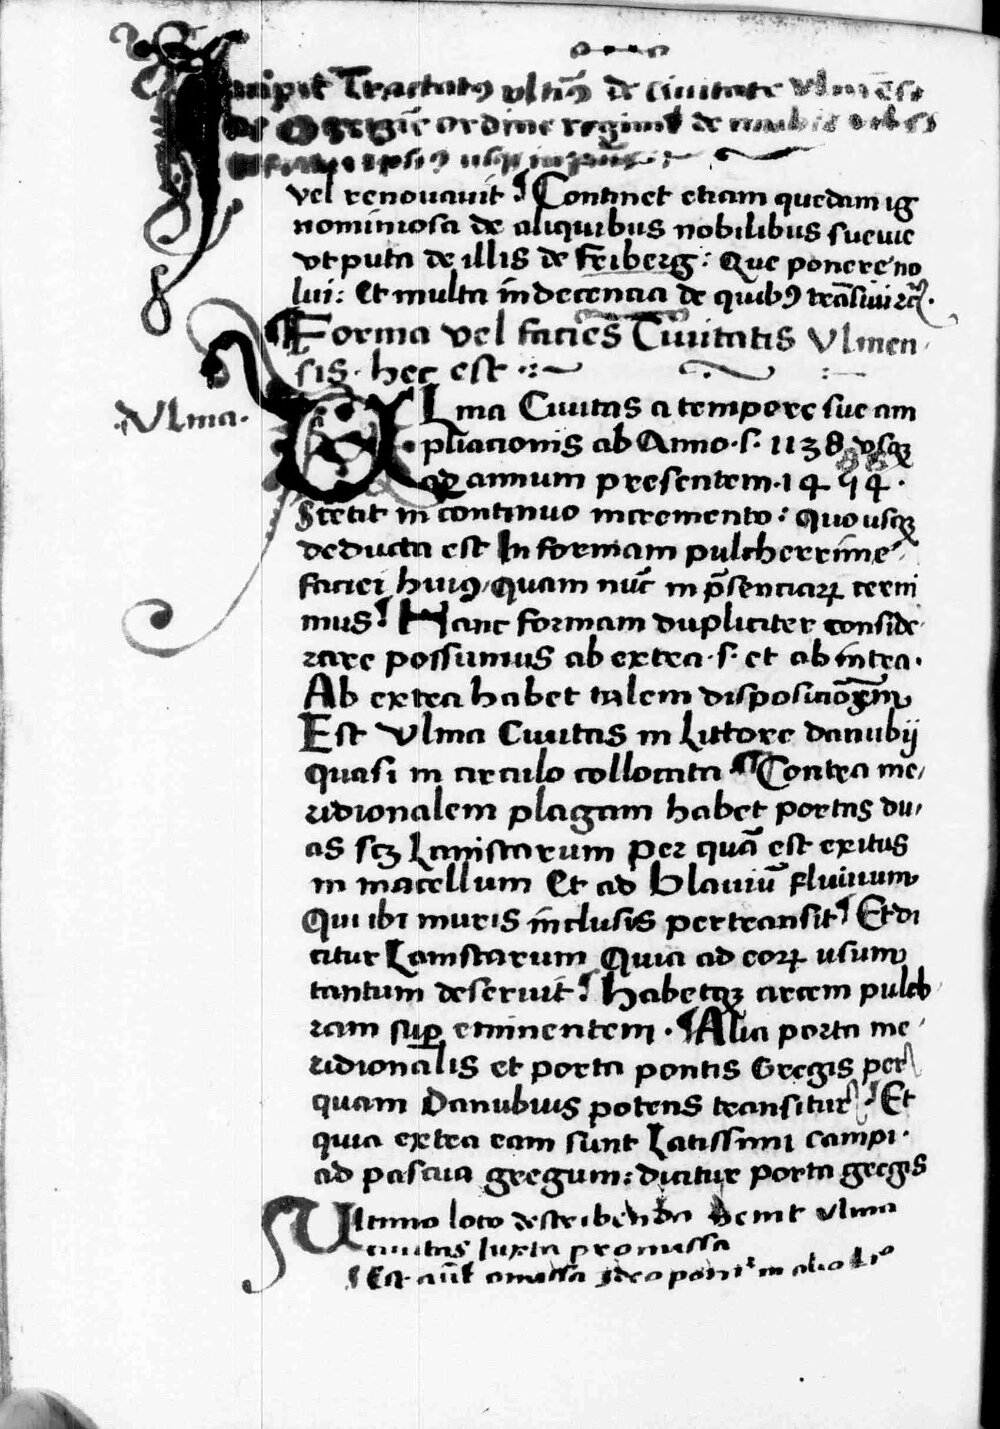 Incipit Tractatꝯ ultiꝰ de Ciuitate Vlmēsi
De origīe ordine regimīe de
vel renouauit ¶ Continet etiam quedam ig
nominiosa de aliquibus nobilibus sueuie
vt puta de illis de Freiberg: Que ponere no
lui: Et multa indecencia de quibꝰ trāsiui ꝛc̄.
¶ Forma vel facies Ciuitatis Vlmen
sis. hec est
.Vlma.
VLma Ciuitas a tempore sue am
pliacionis ab Anno .s. 1138 vsqꝫ
ad annum presentem .1494.
Stetit in continuo incremento: Quousqꝫ
deducta est In formam pulcherrime
faciei huiꝰ, Quam nūc in p̄senciaꝝ cerni
mus ¶ Hanc formam dupliciter conside
rare possumus ab extra .s. et ab intra.
Ab extra habet talem disposicionem
Est Vlma Ciuitas in Littore danubij
quasi in circulo collocata ¶ Contra me
ridionalem plagam habet portas du
as scꝫ Lanistarum per quā est exitus
in macellum Et ad blauiū fluiuum
Qui ibi muris inclusis pertransit ¶ Et di
citur Lanistarum Quia ad eoꝝ usum
tantum deseruit ¶ habetqꝫ arcem pulch
ram suꝑ eminentem . ¶ Alia porta me
ridionalis et porta pontis Gregis per
quam Danubius potens transitur ¶ Et
quia extra eam sunt Latissimi campi.
ad pascua gregum: dicitur porta gregis
Vltimo loco describenda venit vlma
ciuitas Iuxta promissa
Est aūt omissa Ideo ponit̄ in alio